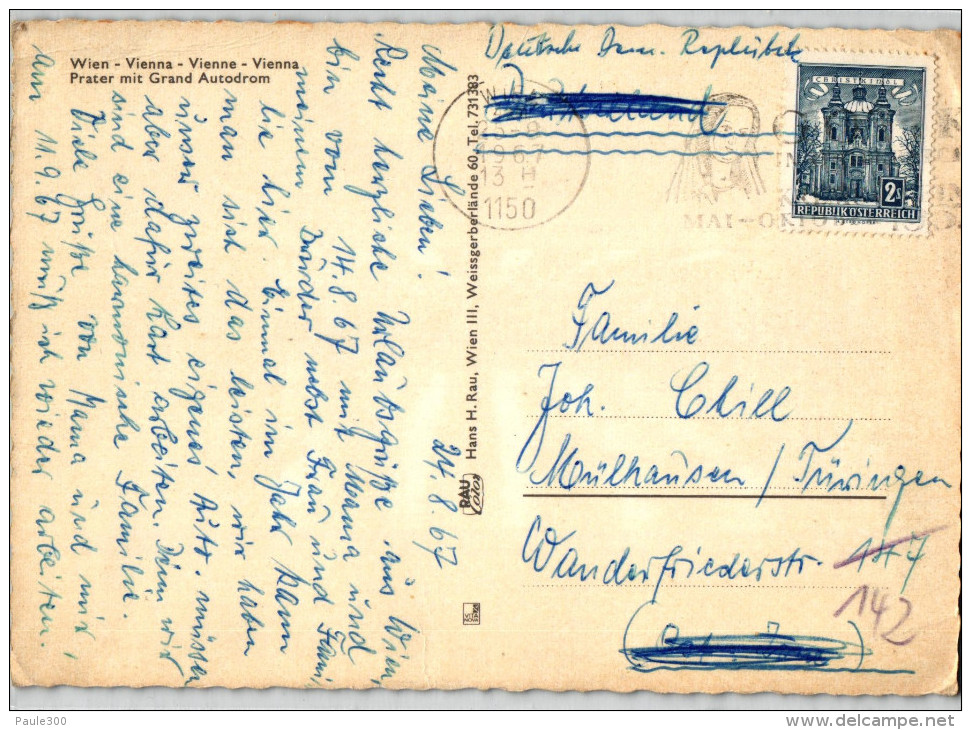 Wien - Vienna - Vienne - Vienna
Prater mit Grand Autodrom
24.8.67
Meine Lieben!
Recht herzliche Urlaubsgrüße aus Wien,
bin vom 14.8.67 mit Mama und
meinem Bruder nebst Frau und Fami
lie hier. Einmal im Jahr kann
man sich das leisten, wir haben
unser zweites eigenes Auto. müssen
aber dafür hart arbeiten. Denn wir
sind eine harmonische Familie.
Viele Grüße von Mama und mir,
am 11.9.67 muß ich wieder arbeiten.
Hans H. Rau, Wien III, Weissgerberlände 60, Tel. 731383
RAU
Color
VITA
NOVA
Deutsche Dem. Republik
1967
13
1150
MAI-OKTOBER
CHRISTKINDL
2s
REPUBLIK ÖSTERREICH
Familie
Joh. Chill
Mülhausen / Türingen
Wanderfriederstr.
142
Paule300
delcampe.net